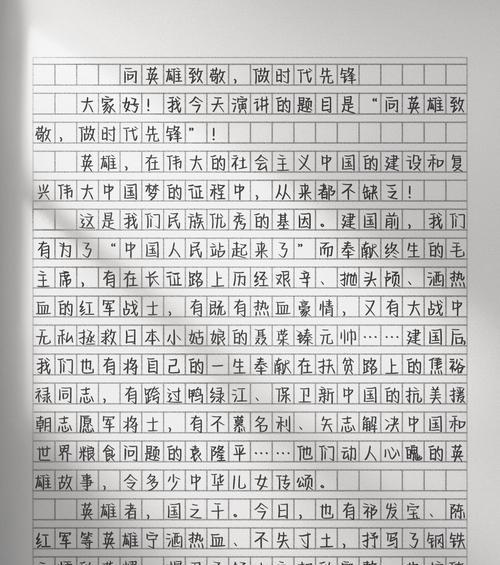 向英雄致敬，做时代先锋
大家好！我今天演讲的题目是“向英雄致
敬，做时代先锋”！
英雄，在伟大的社会主义中国的建设和复
兴伟大中国梦的征程中，从来都不缺乏！
这是我们民族优秀的基因。建国前，我们
有为了“中国人民站起来了”而奉献终生的毛
主席，有在长征路上历经艰辛、抛头颅、洒热
血的红军战士，有既有热血豪情，又有大战中
无私拯救日本小姑娘的聂荣臻元帅……建国后
我们也有将自己的一生奉献在扶贫路上的焦裕
禄同志，有跨过鸭绿江、保卫新中国的抗美援
朝志愿军将士，有不慕名利、矢志解决中国和
世界粮食问题的袁隆平……他们动人心魄的英
雄故事，令多少中华儿女传颂。
英雄者，国之干。今日，也有祁发宝、陈
红军等英雄宁洒热血、不失寸土，抒写了钢铁